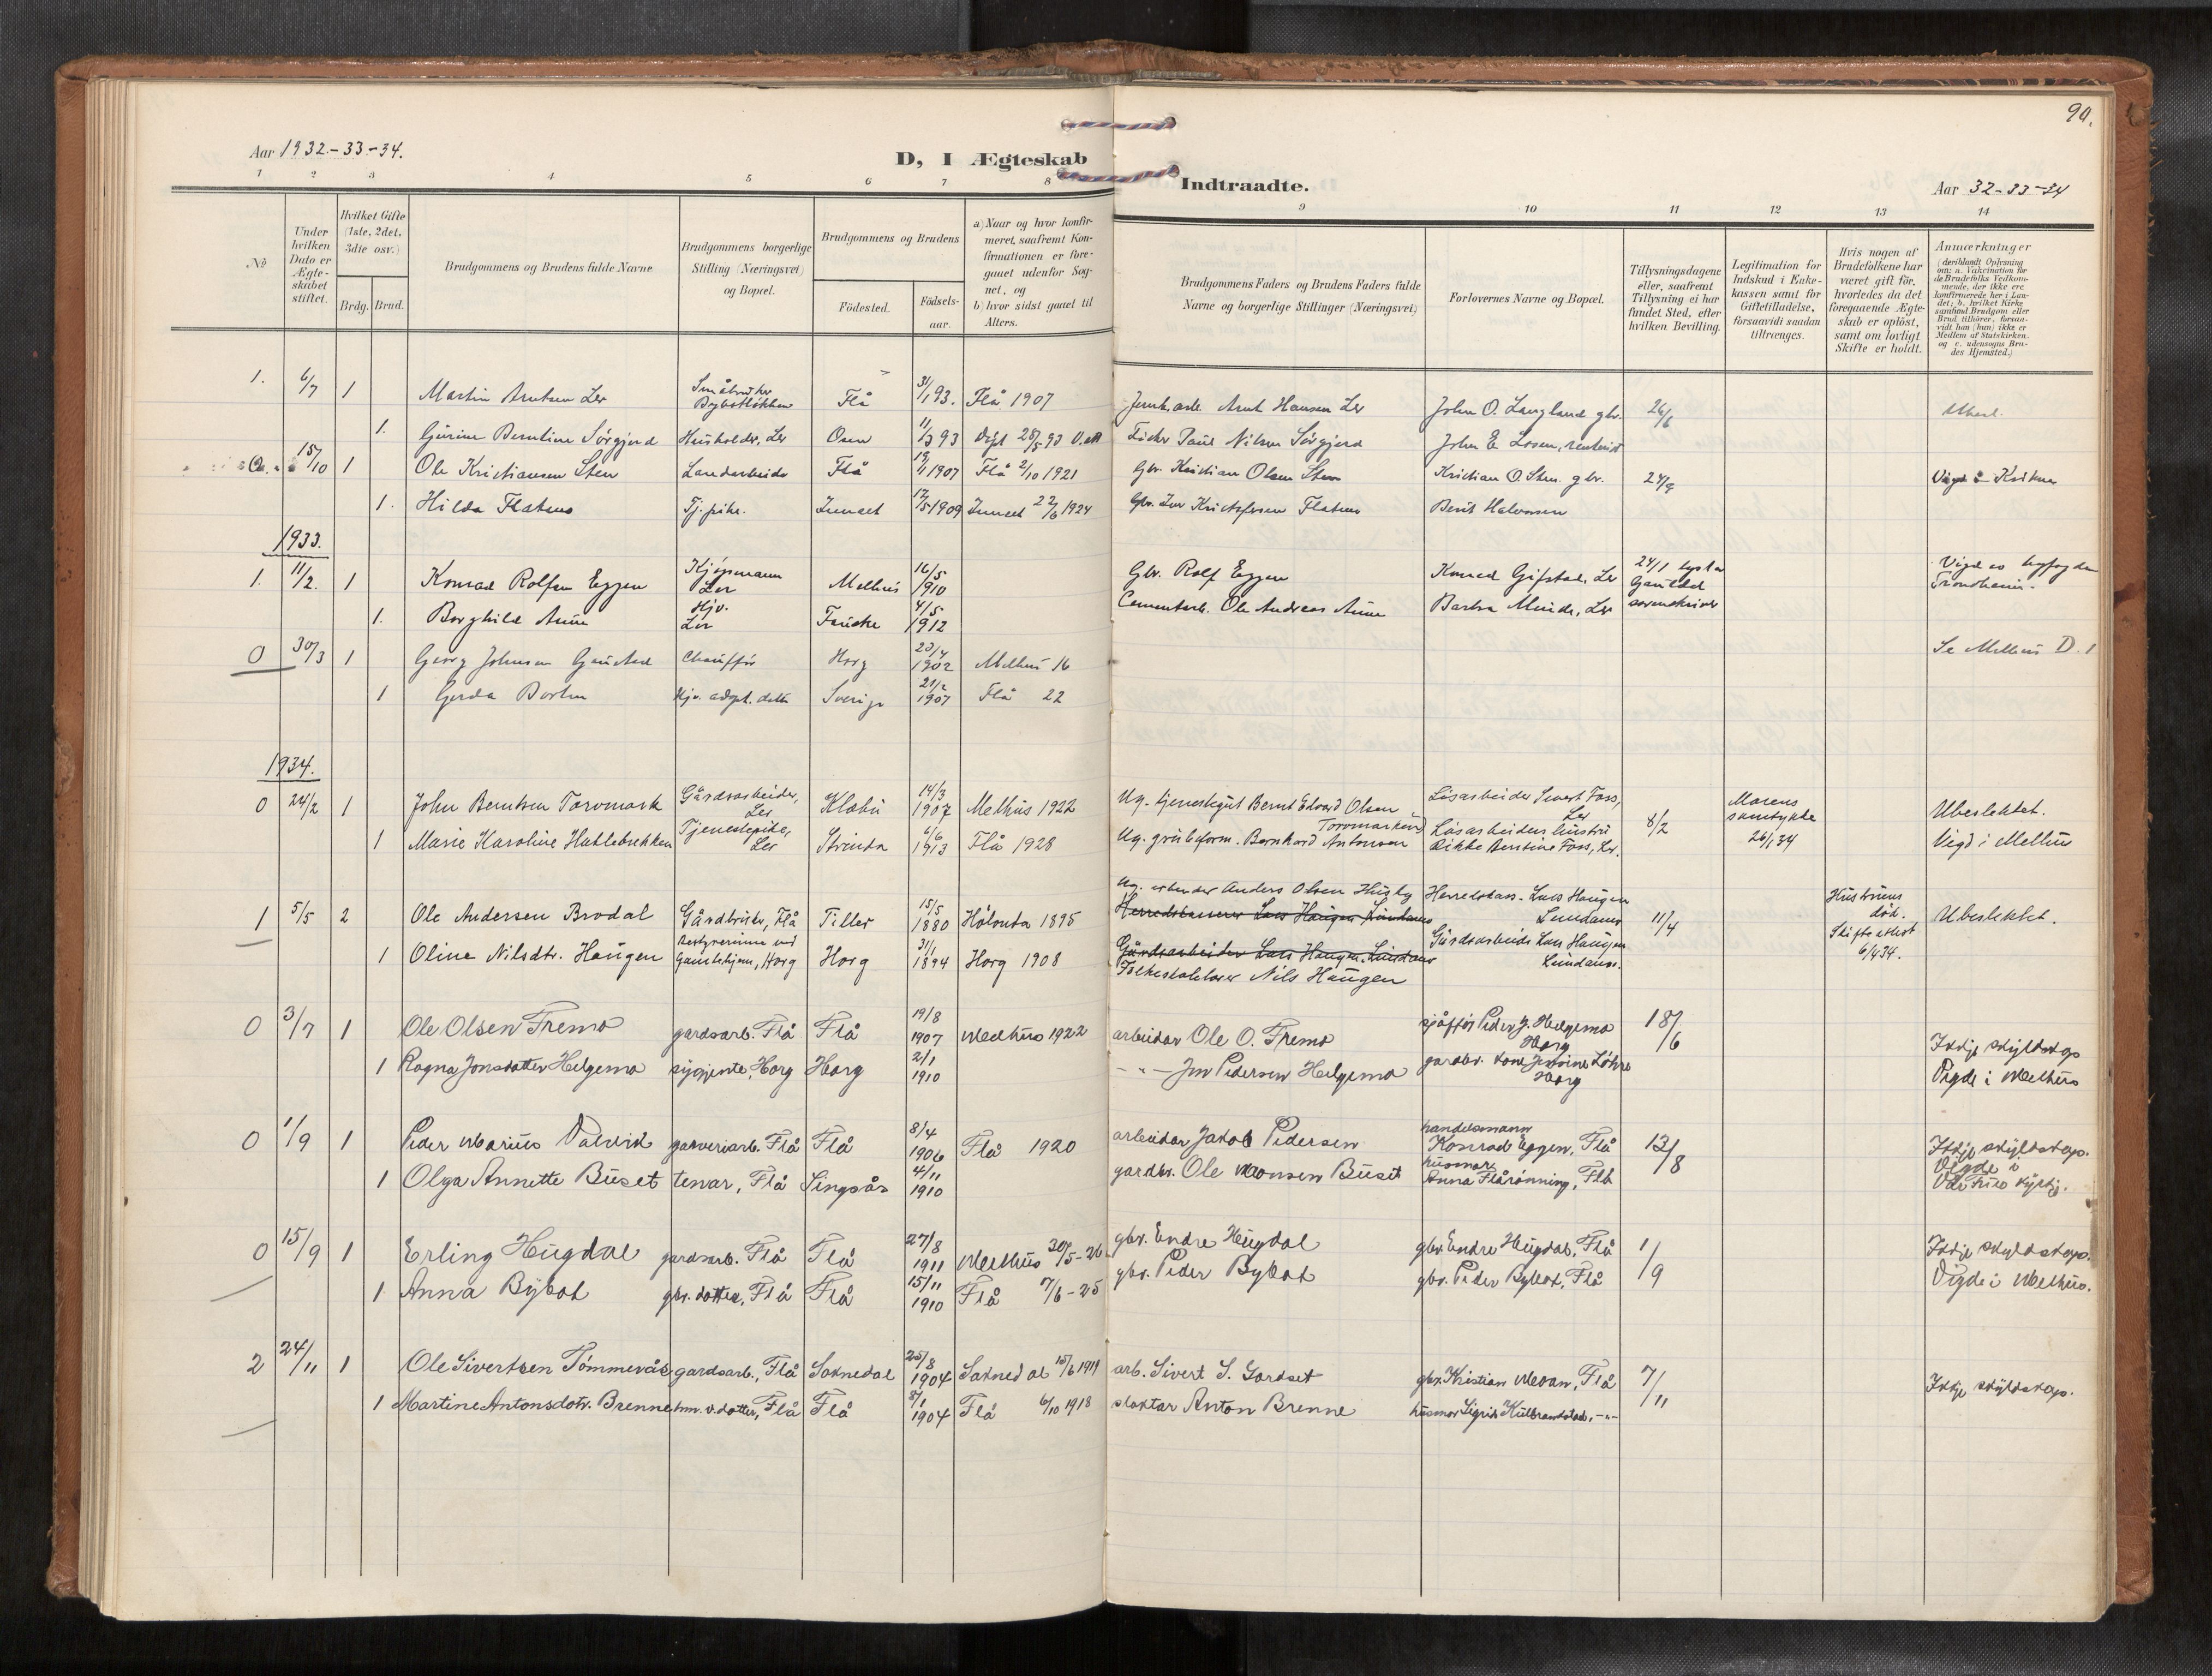 90.
Aar 1932-33-34.
D, I Ægteskab
Indtraadte.
Aar 32-33-34
1 2 3 4 5 6 7 8
9 10 11 12 13 14
No
Under hvilken Dato er Ægteskabet stiftet.
Hvilket Gifte (1ste, 2det, 3die osv.)
Brdg. Brud.
Brudgommens og Brudens fulde Navne
Brudgommens borgerlige Stilling (Næringsvei) og Bopæl.
Brudgommens og Brudens
Födested.
Födsels-aar.
a) Naar og hvor konfirmeret, saafremt Konfirmationen er foregaaet udenfor Sognet, og
b) hvor sidst gaaet til Alters.
Brudgommens Faders og Brudens Faders fulde Navne og borgerlige Stillinger (Næringsvei)
Forlovernes Navne og Bopæl.
Tillysningsdagene eller, saafremt Tillysning ei har fundet Sted, efter hvilken Bevilling.
Legitimation for Indskud i Enkekassen samt for Giftetilladelse, forsaavidt saadan tiltrænges.
Hvis nogen af Brudefolkene har været gift för, hvorledes da det foregaaende Ægteskab er oplöst, samt om lovligt Skifte er holdt.
Anmærkninger
(deriblandt Oplysning om: a. Vakcination for de Brudefolks Vedkommende, der ikke ere konfirmerede her i Landet; b. hvilket Kirkesamfund Brudgom eller Brud tilhörer, forsaavidt han (hun) ikke er Medlem af Statskirken, og c. udensogns Brudes Hjemsted.)
1. 6/7 1 Martin Arntsen Ler Småbruker Flå 31/1 93. Flå 1907 Arnt Hansen Ler John O. Langland gbr. 26/6 Ubesl.
1. Gurine Berntine Sörgjerd Husholder, Ler Osen 11/3 93 Döpt 28/5 93 Paul Nilsen Sörgjerd John E. Losen
15/10 1 Ole Kristiansen Sten Landarbeider Flå 1907 Flå 2/10 1921 Gbr. Kristian Olsen Sten Kristian O. Sten gbr. 24/9 Vigd i Kirken
1. Hilda Flatmo Tj. pike. 17/5 1909 22/6 1924 Flatmo Berit Halvorsen
1933.
1. 11/2. 1 Konrad Rolfsen Eggen Kjöpmann Ler Melhus 16/5 1910 Gbr. Rolf Eggen Konrad Gifstad, Ler 24/1 Gauldal sorenskriver Vigd av byfogden Trondheim.
1. Borghild Aune Hjv. Ler Fauske 4/5 1912 Cementarb. Ole Andreas Aune Barbra Minde, Ler
0 30/3 1 Georg Johnsen Gaustad Chauffør Horg 23/4 1902 Melhus 16 Se Melhus D. 1
1 Gerda Borten Hjv. adopt. datter Sverige 21/2 1907 Flå 22
1934.
0 24/2 1 John Berntsen Toromark Gårdsarbeider, Ler Klæbu 14/3 1907 Melhus 1922 Ug. tjenestegut Bernt Edvard Olsen Toromarken Lösarbeider Sivert Foss, Ler 8/2 Morens samtykke 26/1 34 Ubeslektet.
1 Marie Karoline Hallebrekken Tjenestepike, Ler Strinda 6/6 1913 Flå 1928 Ug. Bernhard Antonsen Lösarbeiders hustru Rikke Berntine Foss, Ler. Vigd i Melhus
1 5/5 2 Ole Andersen Brodal Gårdbruker, Flå Tiller 15/5 1880 Hölonda 1895 Ug. arbeider Anders Olsen Husby Herredskass. Lars Haugen Lundamo 11/4 Hustruens död. Skifteattest 6/4 34. Ubeslektet.
Herredskasserer Lars Haugen Lundamo
1 Oline Nilsdtr. Haugen Bestyrerinne ved Gamlehjem, Horg Horg 31/1 1894 Horg 1908 Gårdsarbeider Lars Haugen, Lundamo Gårdsarbeider Lars Haugen Lundamo.
Folkeskolelærer Nils Haugen
0 3/7 1 Ole Olsen Fremo gardsarb. Flå Flå 19/8 1907 Melhus 1922 arbeidar Ole O. Fremo sjåfför Peder J. Helgemo Horg 18/6 Ikkje skyldskap
1 Ragna Jonsdatter Helgemo sygjente, Horg Horg 2/1 1910 -"- Jon Pedersen Helgemo Horg Vigde i Melhus
0 1/9 1 Peder Marius Valvik garveriarb. Flå Flå 8/4 1906 Flå 1920 arbeidar Jakob Pedersen handelsmann Konrad Eggen, Flå 13/8 Ikkje skyldskap.
1 Olga Annette Buset tenar, Flå Singsås 4/11 1910 gardbr. Ole Monsen Buset husmor Anna Flårönning, Flå Vigde i Vår Frue kyrkje.
0 15/9 1 Erling Hugdal gardsarb. Flå Flå 27/8 1911 Melhus 30/5-26 gbr. Endre Hugdal gbr. Endre Hugdal, Flå 1/9 Ikkje skyldskap.
1 Anna Bybot gbr. dotter, Flå Flå 15/11 1910 Flå 7/6-25 gbr. Peder Bybot gbr. Peder Bybot, Flå Vigde i Melhus.
2 24/11 1 Ole Sivertsen Tömmerås gardsarb., Flå Soknedal 25/8 1904 Soknedal 15/6 1919 arb. Sivert S. Gardset gbr. Kristian Moan, Flå 7/11 Ikkje skyldskap.
1 Martine Antonsdotr. Brenne hm. v. dotter, Flå Flå 8/1 1904 Flå 6/10 1918 slaktar Anton Brenne husmor Sigrid Kulbrandstad, -"-